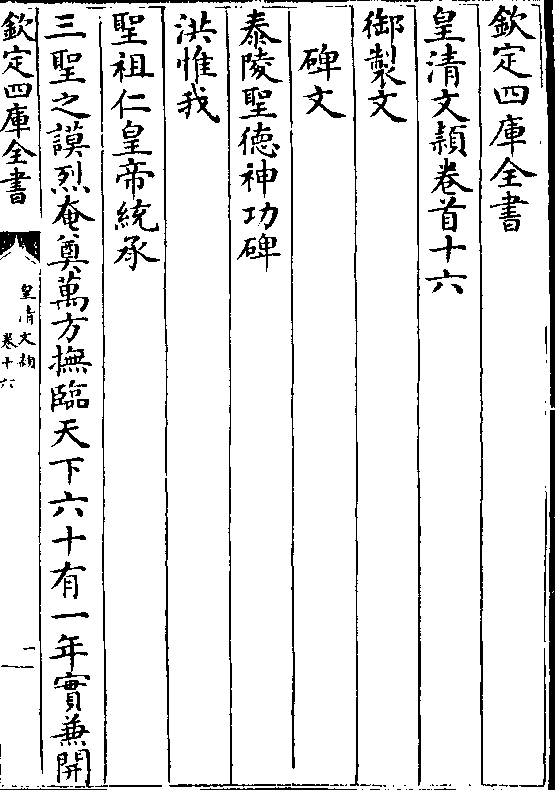 欽定四庫全書
皇清文頴卷首十六
御製文
碑文
泰陵聖德神功碑
洪惟我
聖祖仁皇帝統承
三聖之謨烈奄奠萬方撫臨天下六十有一年實兼開
欽定四庫全書
皇清文頴
卷十六
一